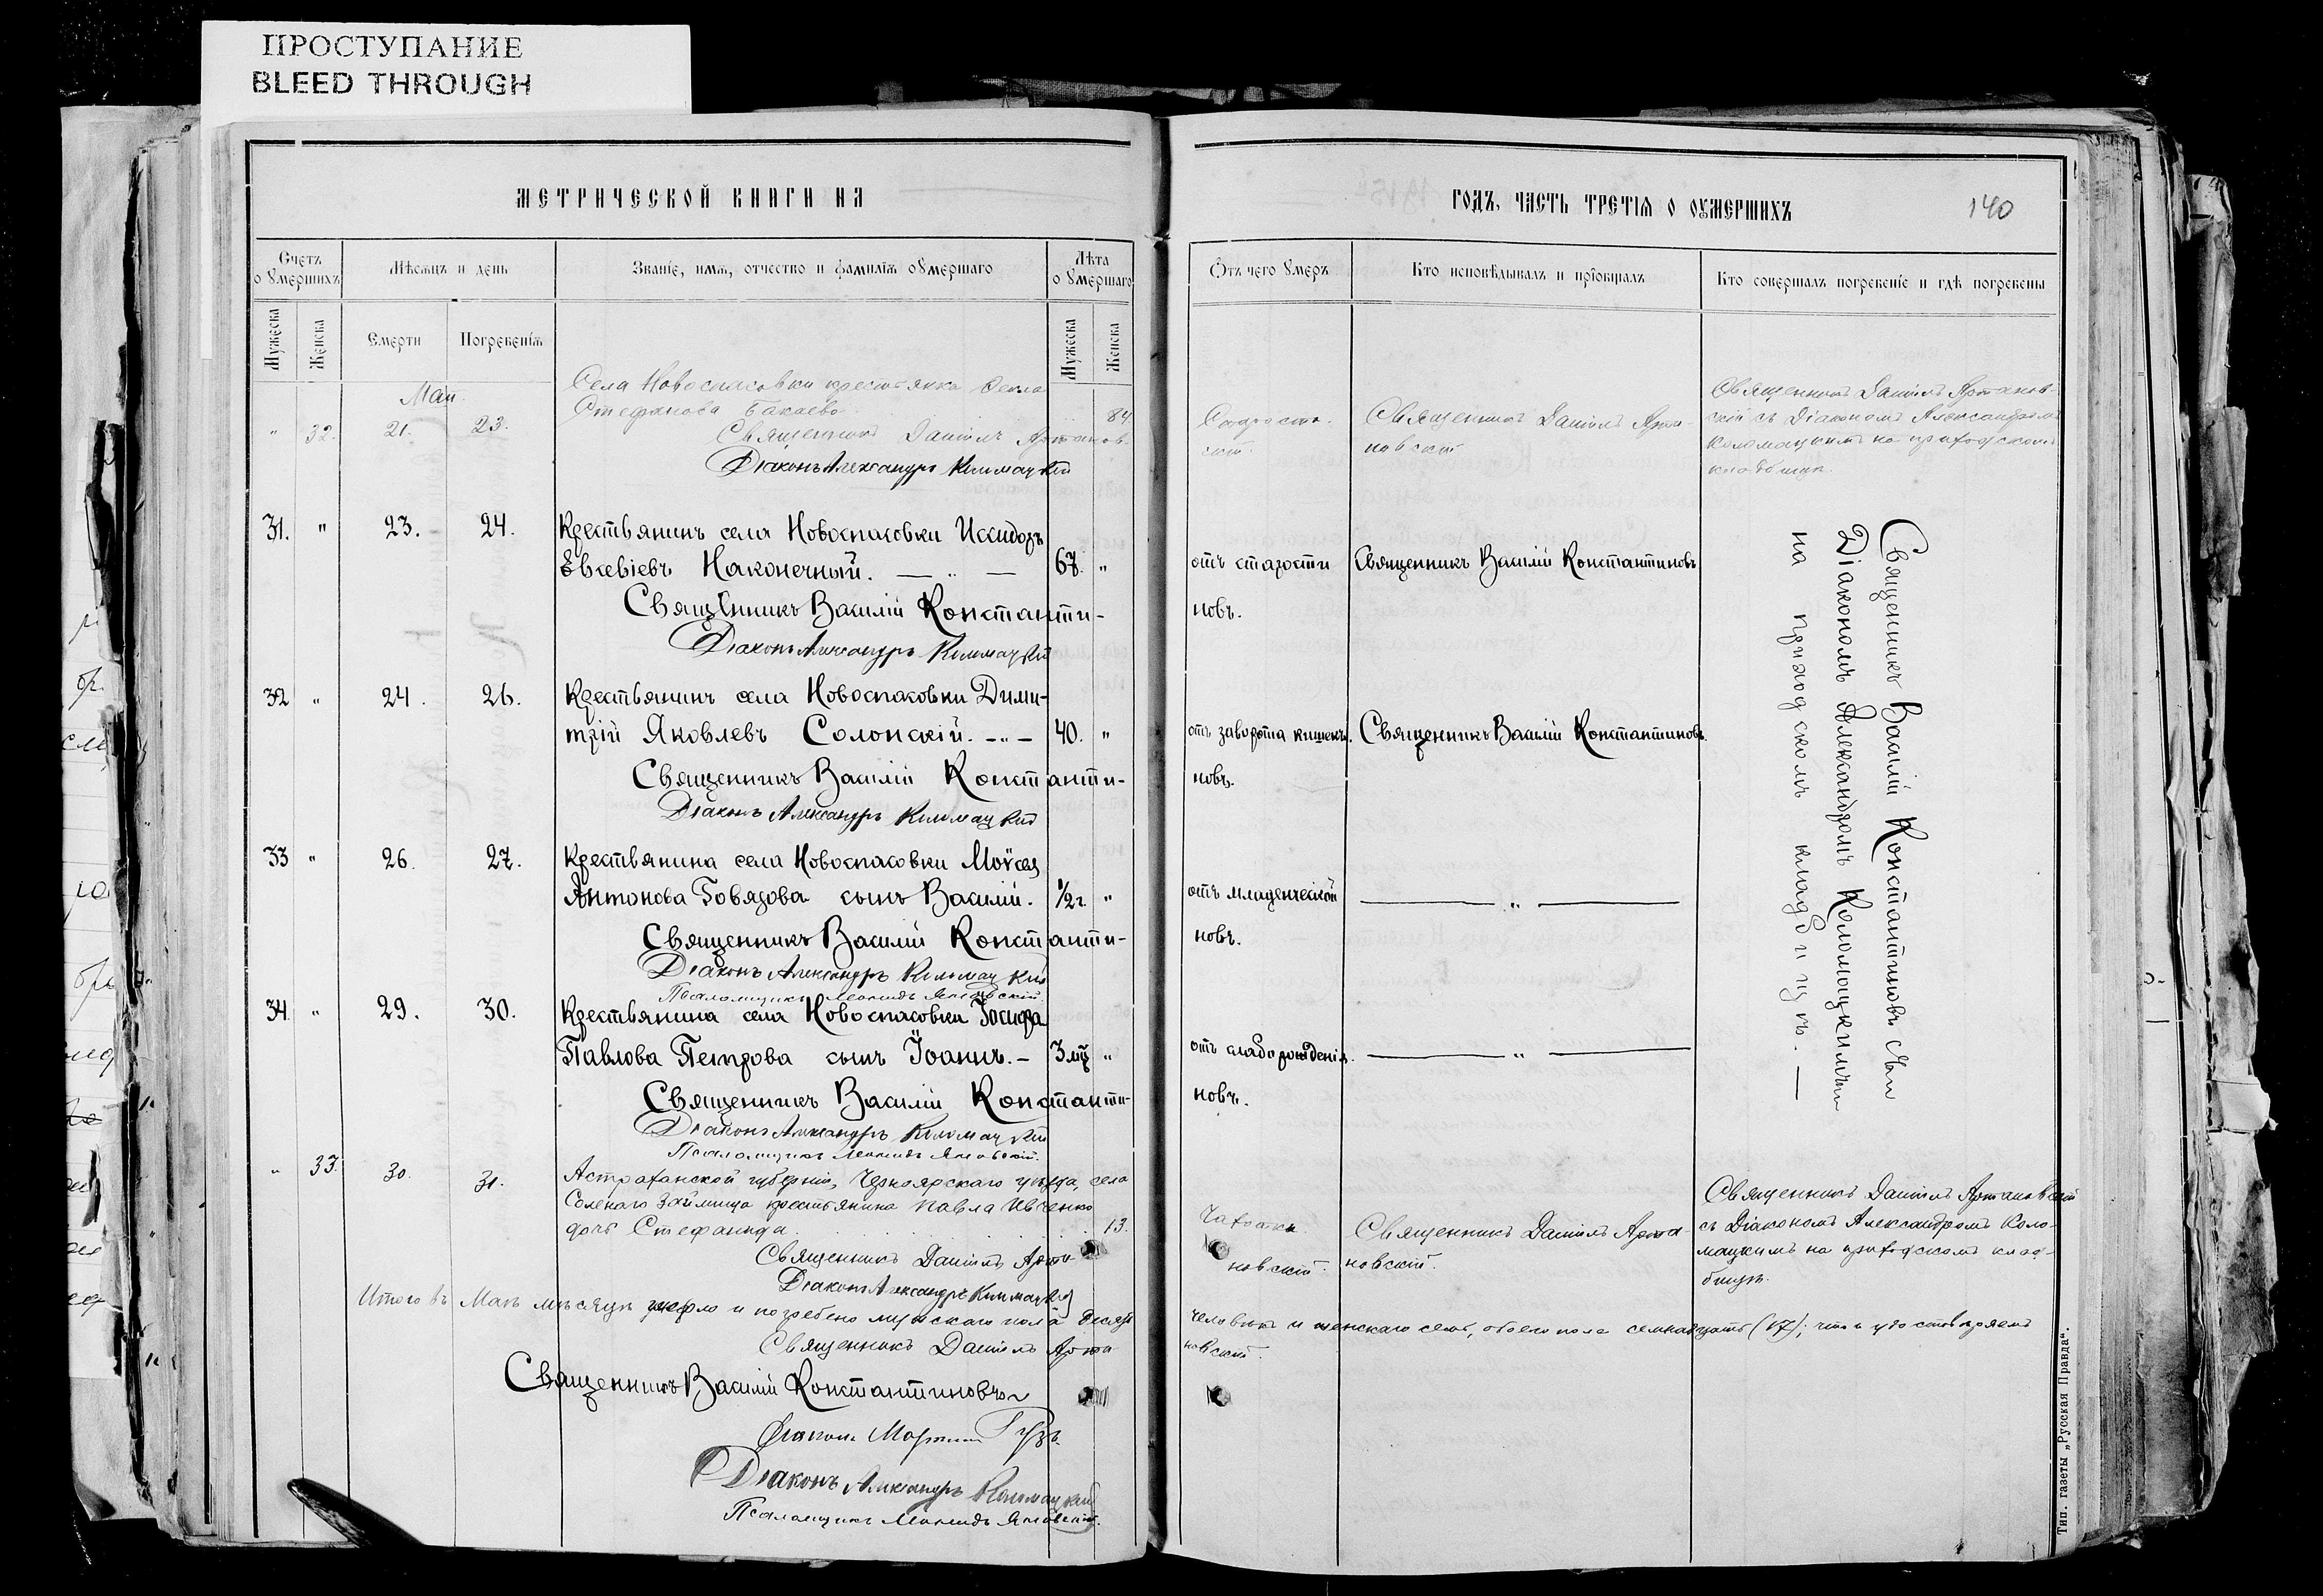 ПРОСТУПАНИЕ
BLEED THROUGH
МЕТРИЧЕСКОЙ КНИГИ НА
Счетъ оумершихъ
Мѣсяцъ и день
Званіе, имя, отчество и фамилія оумершаго
Лѣта оумершаго
Мужеска
Женска
Смерти
Погребенія
Мужеска
Женска
Май.
Села Новоспасовки крестьянка Фекла
" 32. 21. 23. Стефанова Бакаева 84
Священникъ Даніилъ Артанов-
Діаконъ Александръ Коломацкій
31. " 23. 24. Крестьянинъ села Новоспасовки Исидоръ
Евсевіевъ Наконечный. — " — 67. "
Священникъ Василій Константи-
Діаконъ Александръ Коломацкій
32 " 24. 26. Крестьянинъ села Новоспасовки Дими-
трій Яковлевъ Солонскій. - " - 40. "
Священникъ Василій Константи-
Діаконъ Александръ Коломацкій
33 " 26. 27. Крестьянина села Новоспасовки Моѵсея
Антонова Говядова сынъ Василій. 1/2 г. "
Священникъ Василій Константи-
Діаконъ Александръ Коломацкій
Псаломщикъ Леонидъ Яновскій.
34. " 29. 30. Крестьянина села Новоспасовки Іосифа
Павлова Петрова сынъ Іоаннъ. - 3 мц "
Священникъ Василій Константи-
Діаконъ Александръ Коломацкій
Псаломщикъ Леонидъ Яновскій.
" 33. 30. 31. Астраханской губерніи, Черноярскаго уѣзда, села
Соленаго Займища крестьянина Павла Ивченко
дочь Стефанида 13.
Священникъ Даніилъ Арта-
Діаконъ Александръ Коломацкій
Итого въ Маѣ мѣсяцѣ умерло и погребено мужскаго пола десять
Священникъ Даніилъ Арта-
Священникъ Василій Константиновъ
Діаконъ Мартинъ Гузь
Діаконъ Александръ Коломацкій
Псаломщикъ Леонидъ Яновскій.
ГОДЪ, ЧАСТЬ ТРЕТІЯ О ОУМЕРШИХЪ
140
Отъ чего умеръ
Кто исповѣдывалъ и пріобщалъ
Кто совершалъ погребеніе и гдѣ погребены
Старости
Священникъ Даніилъ Арта-
новскій
Священникъ Даніилъ Артанов-
скій съ Діакономъ Александромъ
Коломацкимъ на приходскомъ
кладбищѣ.
отъ старости Священникъ Василій Константиновъ
новъ.
отъ заворота кишекъ. Священникъ Василій Константиновъ.
новъ.
отъ младенческой — " —
новъ.
отъ слаборожденія. — " —
новъ.
Священникъ Василій Константиновъ съ
Діакономъ Александромъ Коломацкимъ
на приходскомъ кладбищѣ. —
Чахотки
новскій.
Священникъ Даніилъ Арта-
новскій.
Священникъ Даніилъ Артановскій
съ Діакономъ Александромъ Коло-
мацкимъ на приходскомъ клад-
бищѣ.
человѣкъ и женскаго семь, обоего пола семнадцать (17); что и удостовѣряемъ
новскій.
Тип. газеты „Русская Правда".